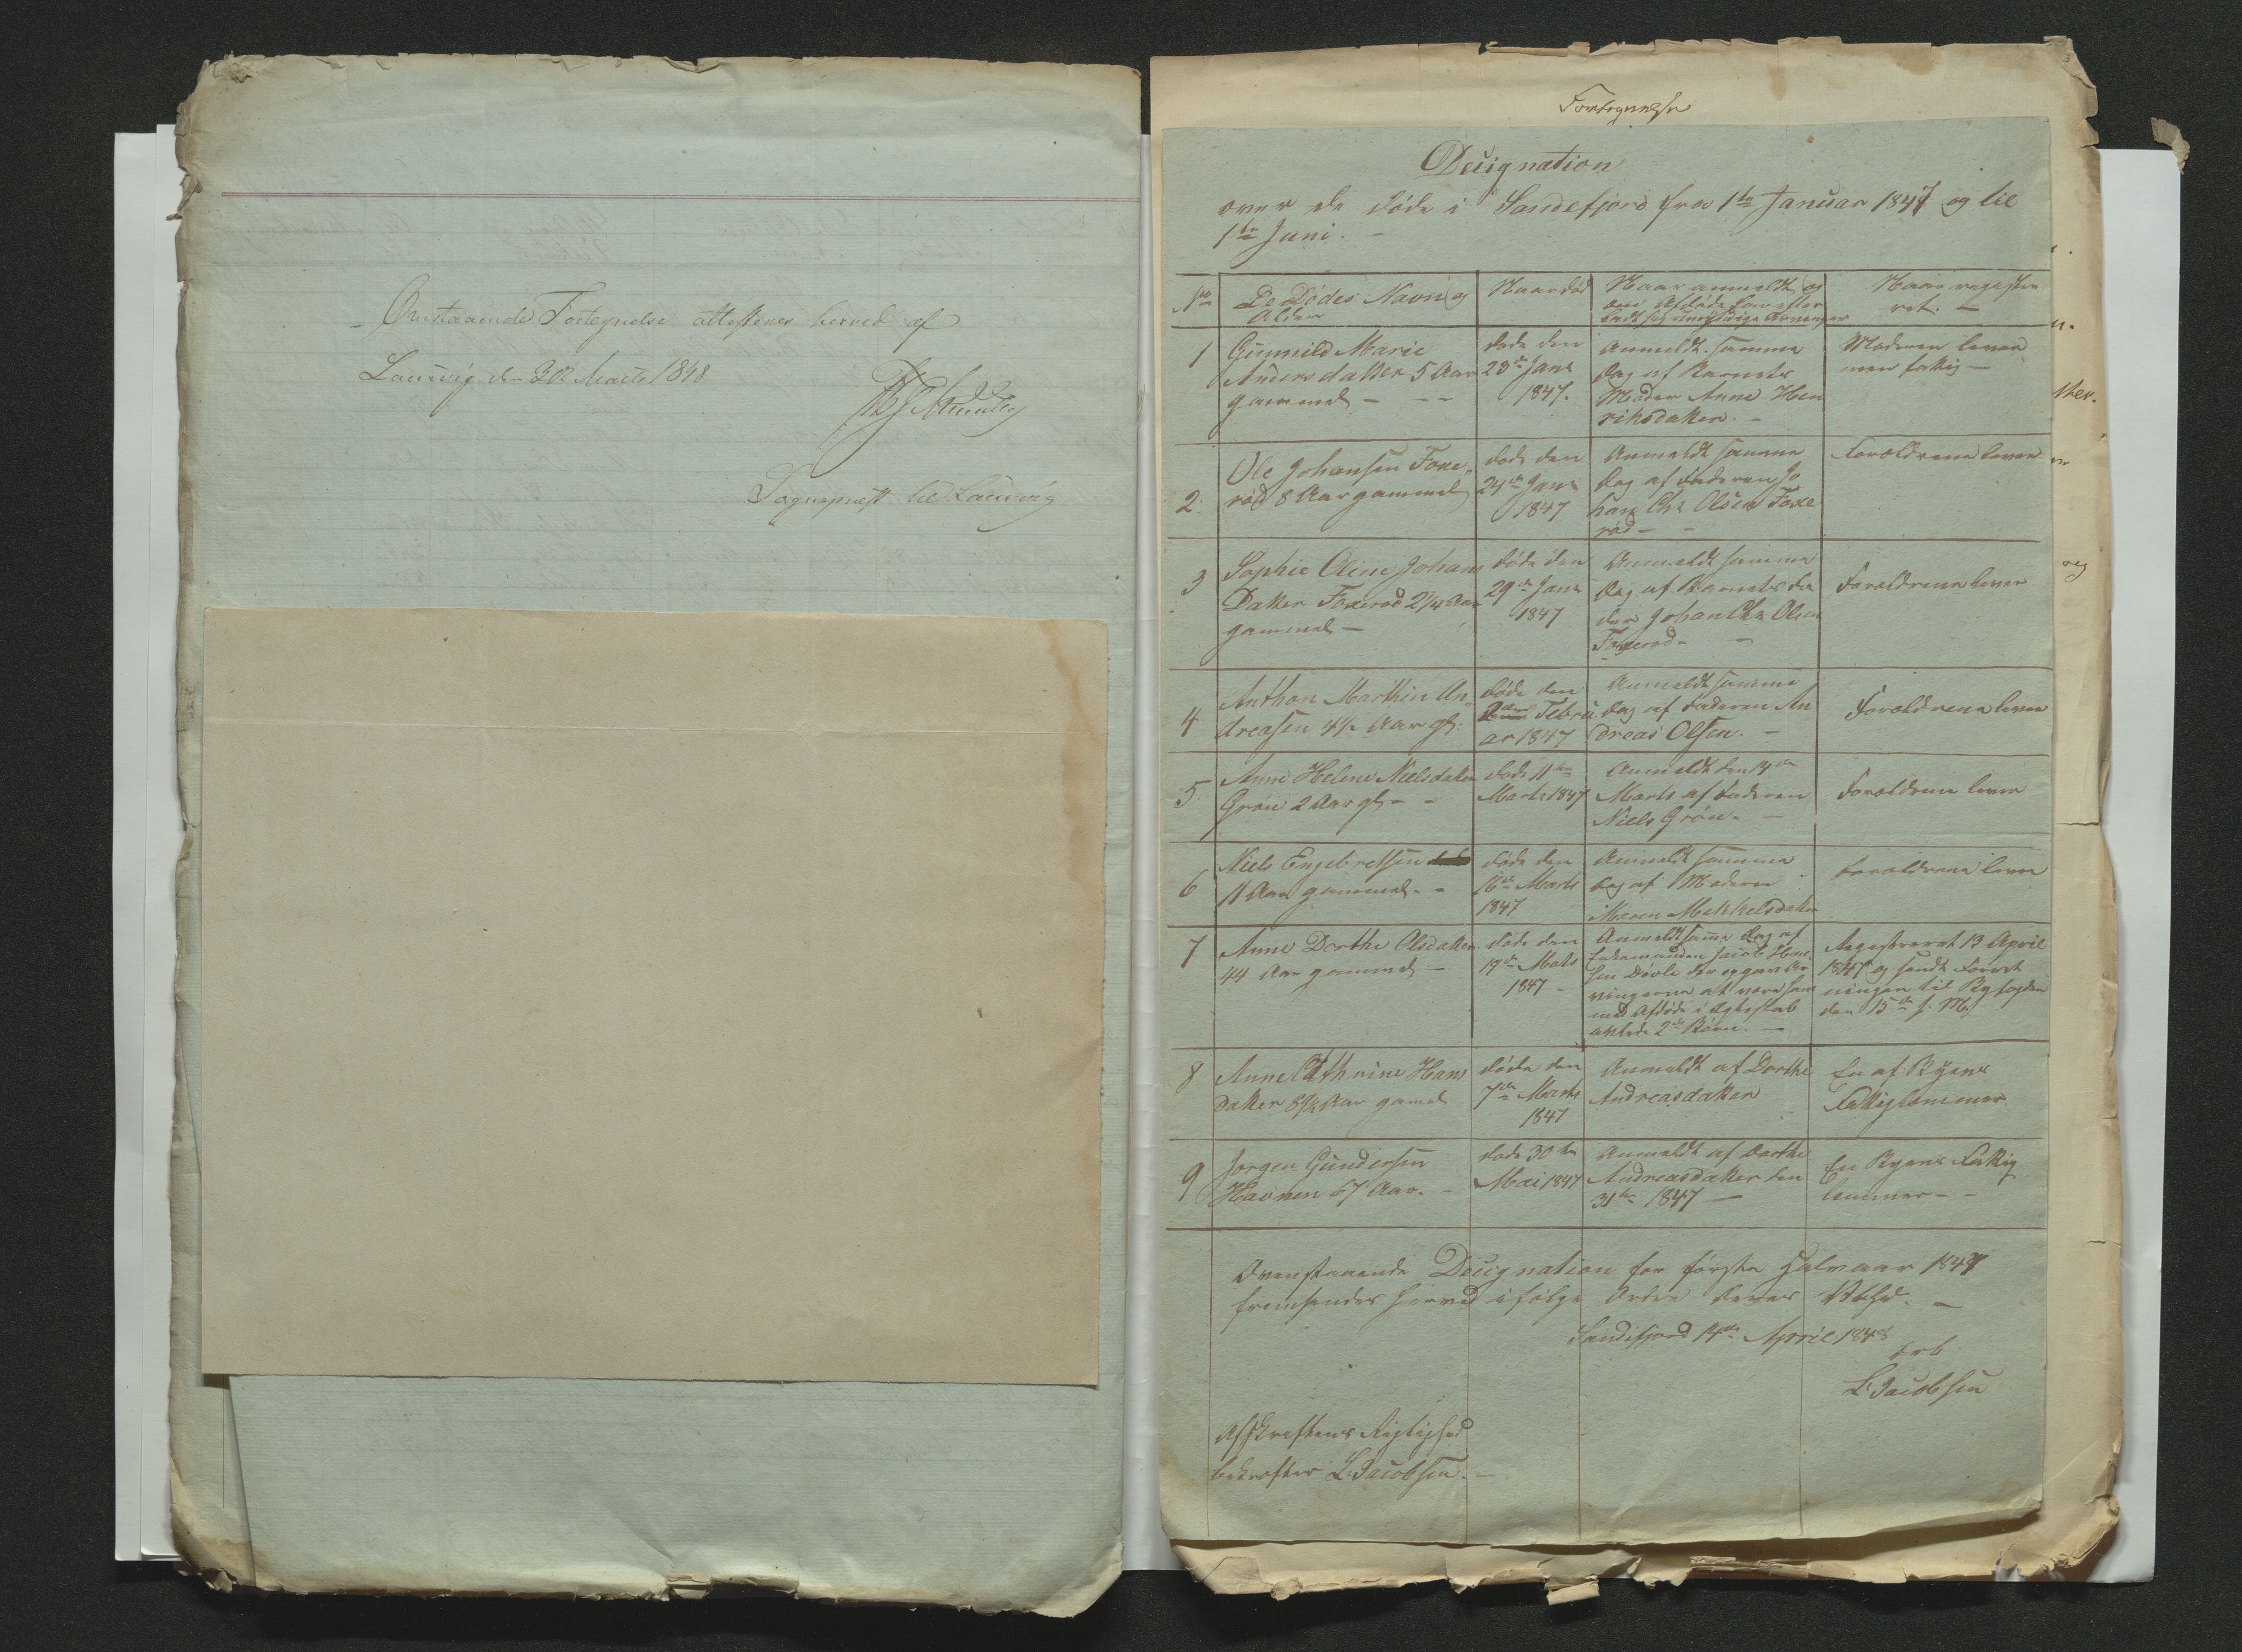 Omstaaende Fortegnelse attesteres herved af
Laurvig d. 30 Marts 1848
Sognepræst til Laurvig
Fortegnelse
Designation
over de døde i Sandefjord fra 1ste Januar 1847 og til
1ste Juni. -
No
De Dødes Navn og
Alder
Naar død
Naar anmeldt og
om Afdøde har efter
ladt sig umyndige Arvinger
Naar registre
ret. -
1
Gunnild Marie
Andersdatter 5 Aar
gammel - - -
døde den
23de Janr
1847.
Anmeldt samme
Dag af Barnets
Moder Anne Hen
riksdatter. -
Moderen lever
men fattig -
2.
Ole Johansen Foxe
rød 8 Aar gammel
døde den
24de Janr
1847
Anmeldt samme
Dag af Faderen Jo
han Chr Olsen Foxe
rød - -
Forældrene lever
3
Sophie Oline Johans
Datter Foxerød 2 1/4 Aar
gammel -
døde den
29de Janr
1847
Anmeldt samme
Dag af Barnets Fa
der Johan Chr Olsen
Foxerød - -
Forældrene lever
4
Anthon Marthin An
dreasen 4 1/2 Aar gl.
døde den
Febru
ar 1847
Anmeldt samme
Dag af Faderen An
dreas Olsen. -
Forældrene lever
5
Anne Helene Nielsdatter
Grøn 2 Aar gl - -
døde 11te
Marts 1847
Anmeldt den 14de
Marts af Faderen
Niels Grøn. -
Forældrene lever
6
Niels Engebretsen
11 Aar gammel. -
døde den
16de Marts
1847
Anmeldt samme
Dag af Moderen
Maren Mekkelsdatter
Forældrene lever
7
Anne Dorthe Olsdatter
44 Aar gammel -
døde den
19de Marts
1847 -
Anmeldt samme Dag af
Enkemanden Jacob Han
sen Døvle der opgav Ar
vingerne at være ham
med Afdøde i Egteskab
avlede 2de Børn. -
Registreret 13 April
1847 og sendt Forret
ningen til Byfogden
den 15de s. M.
8
Anne Cathrine Hans
datter 89 1/2 Aar gamel
døde den
7de Marts
1847
Anmeldt af Dorthe
Andreasdatter
En af Byens
Fattiglemmer
9
Jørgen Gundersen
Havnen 67 Aar. -
døde 30te
Mai 1847
Anmeldt af Dorthe
Andreasdatter den
31te 1847 -
En Byens Fattig
lemmer - -
Ovenstaaende Designation for første Halvaar 1847
fremsendes herved ifølge Ordre Deres
Sandefjord 14de April 1848
ærb
L. Jacobsen
Afskriftens Rigtighed
bekræfter L. Jacobsen. -